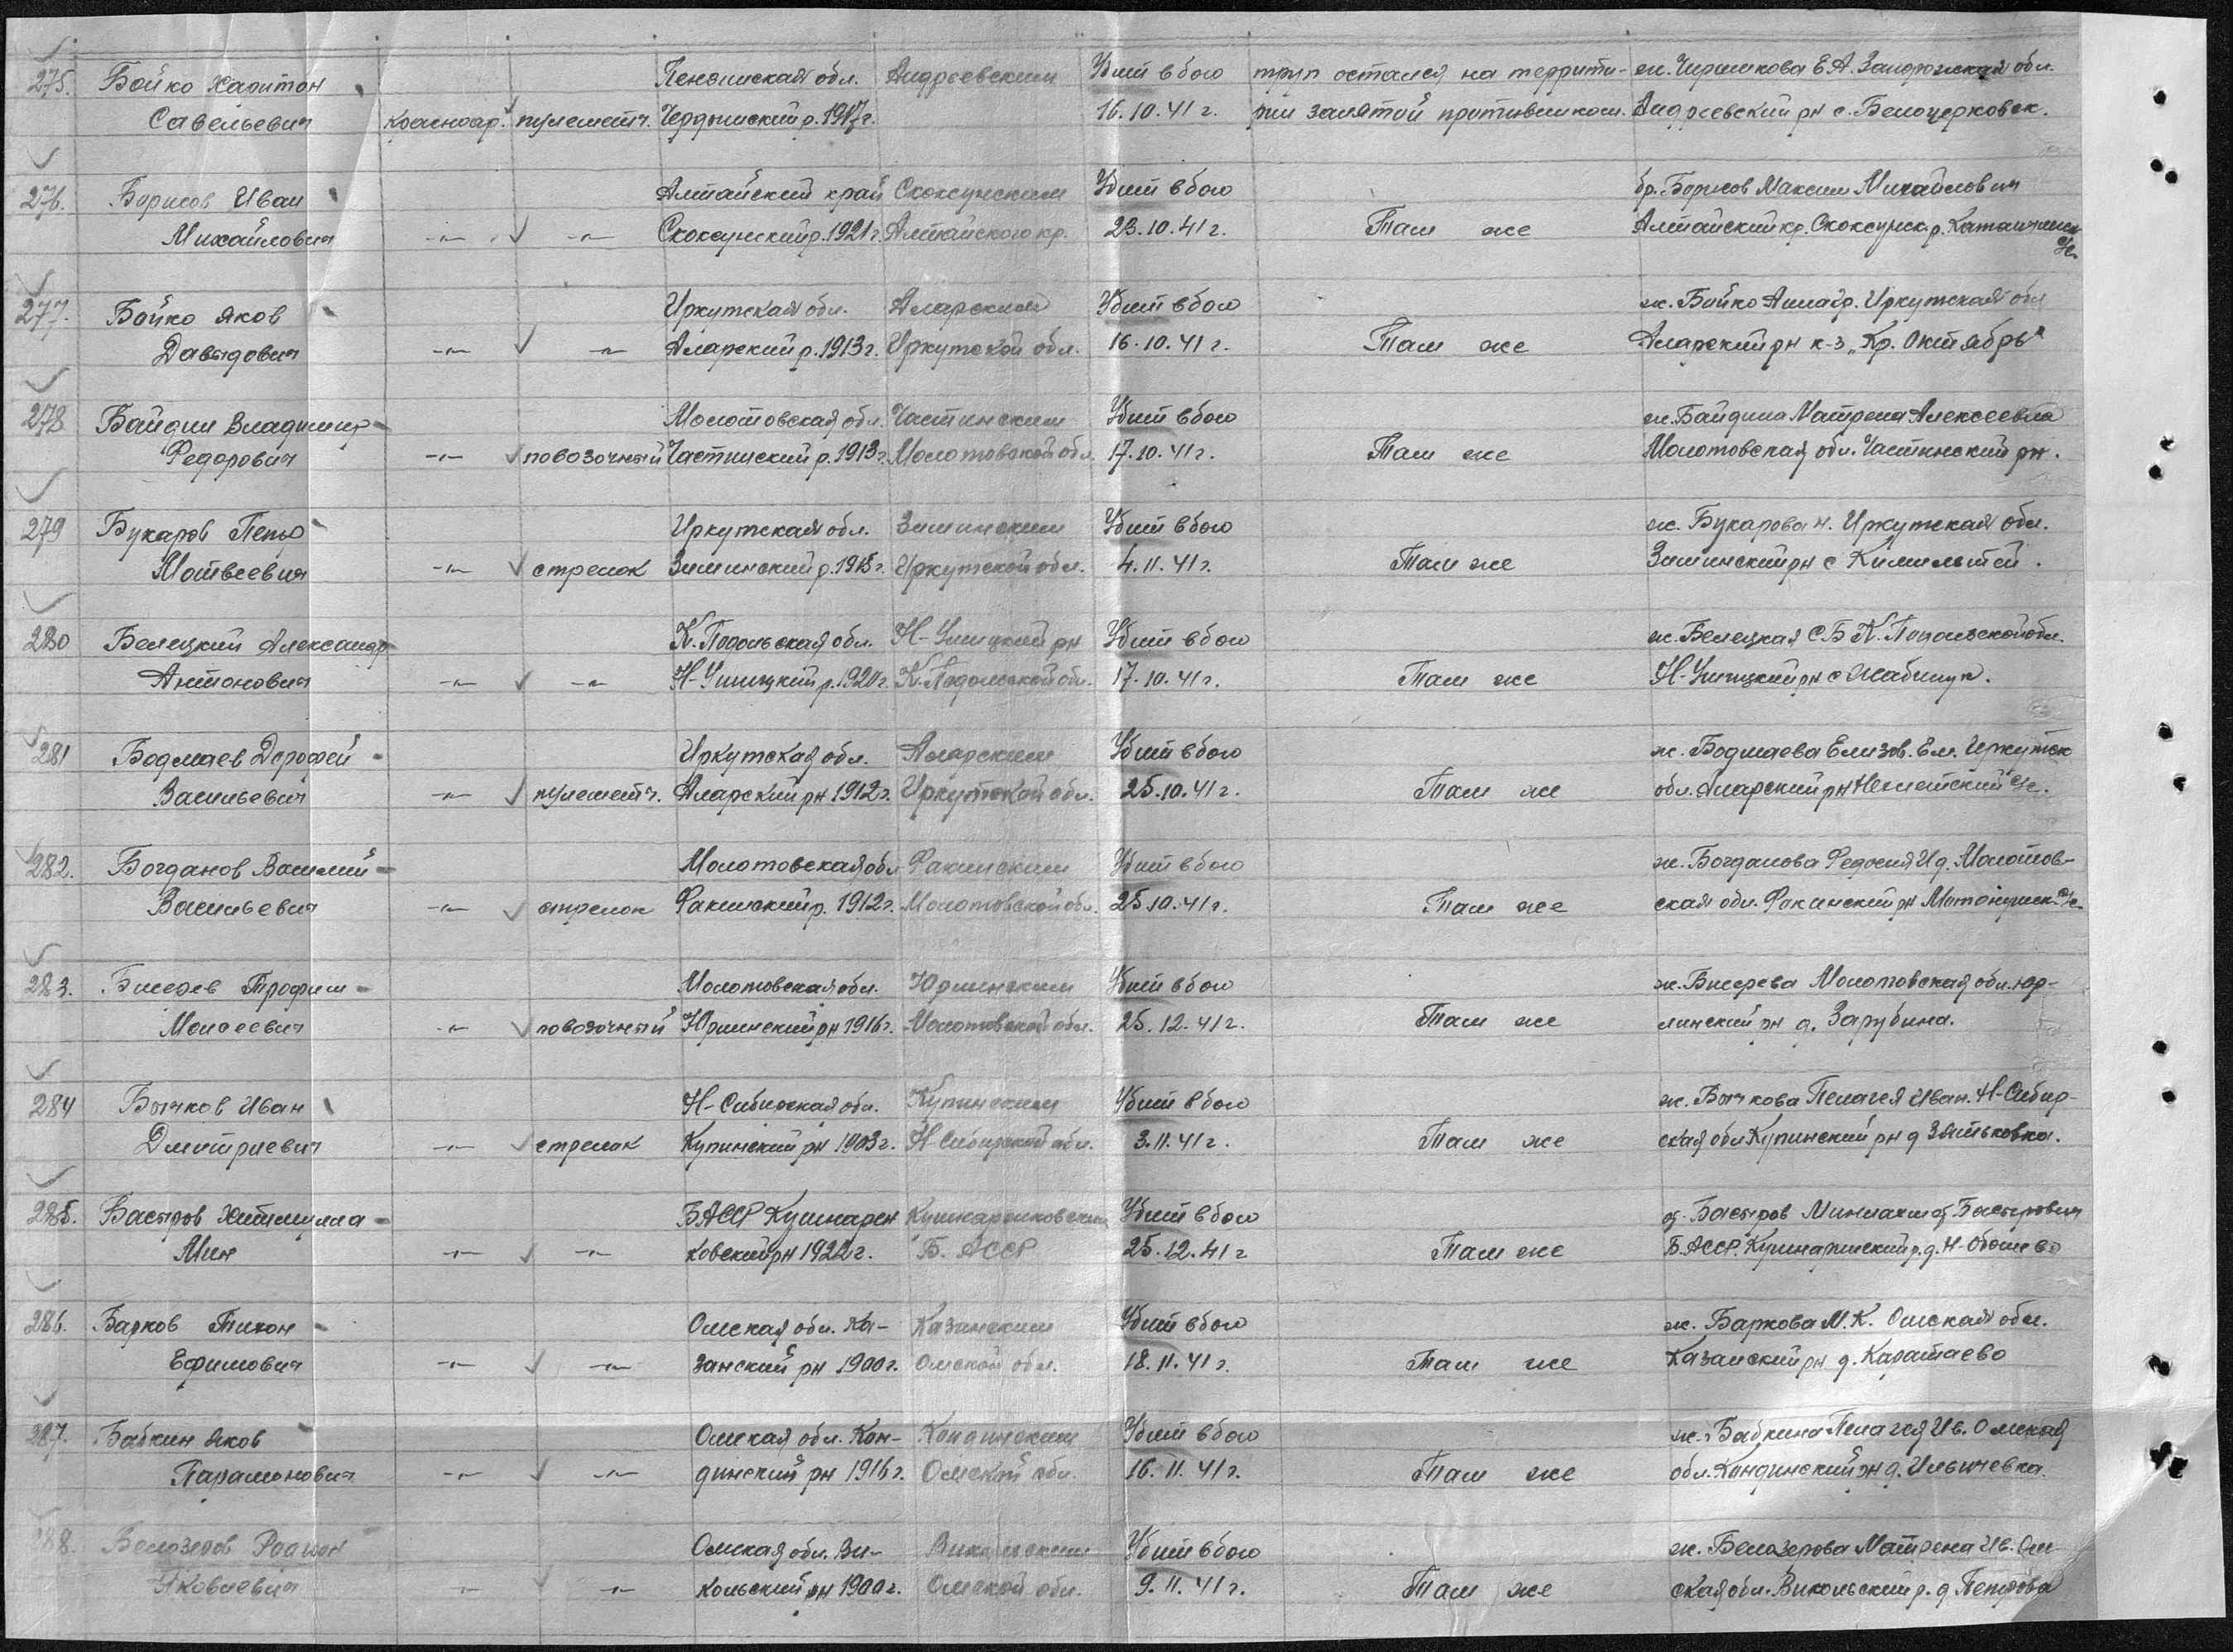 275. Бойко Харитон Пензинская обл. Андреевским Убит в бою труп остался на террито- ж. Чиршкова Е.А. Запорожская обл.
Савельевич красноар. пулеметч. Чердынский р. 1917 г. 16.10.41 г. рии занятой противником. Андреевский рн с. Белоцерковск.
276. Борисов Иван Алтайский край Убит в бою бр. Борисов Максим Михайлович
Михайлович -"- -"- р. 1921 г. Алтайского кр. 23.10.41 г. Там же Алтайский кр.
277. Бойко Яков Иркутская обл. Аларским Убит в бою ж. Бойко Анна гр. Иркутская обл
Давыдович -"- -"- Аларский р. 1913 г. Иркутской обл. 16.10.41 г. Там же Аларский рн к-з „Кр. Октябрь"
278 Байдин Владимир Молотовская обл. Частинским Убит в бою ж. Байдина Матрена Алексеевна
Федорович -"- повозочный Частинский р. 1913 г. Молотовской обл. 17.10.41 г. Там же Молотовская обл. Частинский рн.
279 Букаров Петр Иркутская обл. Зиминским Убит в бою ж. Букарова Н. Иркутская обл.
Матвеевич -"- стрелок Зиминский р. 1915 г. Иркутской обл. 4.11.41 г. Там же Зиминский рн с Кимильтей.
280 Белецкий Александр К. Подольская обл. Н-Ушицкий рн Убит в бою ж. Белецкая С Б К. Подольской обл.
Антонович -"- -"- Н-Ушицкий р. 1920 г. К. Подольской обл. 17.10.41 г. Там же Н-Ушицкий рн с
281 Бодмаев Дорофей Иркутская обл. Аларским Убит в бою ж. Бодмаева Елизов. Ем. Иркутск
Васильевич -"- пулеметч. Аларский рн 1912 г. Иркутской обл. 25.10.41 г. Там же обл. Аларский рн с/с.
282. Богданов Василий Молотовская обл Фокинским Убит в бою ж. Богданова Федосия И д. Молотов-
Васильевич -"- стрелок Фокинский р. 1912 г. Молотовской обл. 25.10.41 г. Там же ская обл. Фокинский рн
283. Бисерев Трофим Молотовская обл. Юрлинским Убит в бою ж. Бисерева Молотовская обл. Юр-
Моисеевич -"- повозочный Юрлинский рн 1916 г. Молотовской обл. 25.12.41 г. Там же линский рн д. Зарубина.
284 Бычков Иван Н-Сибирская обл. Купинским Убит в бою ж. Бычкова Пелагея Иван. Н-Сибир-
Дмитриевич -"- стрелок Купинский рн 1903 г. Н Сибирской обл. 3.11.41 г. Там же ская обл Купинский рн д Зятьковка.
285. Бастров БАССР Кушнарен Кушнаренковским Убит в бою
Мин -"- -"- ковский рн 1922 г. Б. АССР 25.12.41 г Там же Б. АССР
286. Барков Тихон Омская обл. Ка- Казанским Убит в бою ж. Баркова М.К. Омская обл.
Ефимович -"- -"- занский рн 1900 г. Омской обл. 18.11.41 г. Там же Казанский рн д. Каратаево
287. Бабкин Яков Омская обл. Кон- Кондинским Убит в бою ж. Бабкина Пелагея Ив. Омская
Парамонович -"- -"- динский рн 1916 г. Омской обл. 16.11.41 г. Там же обл. Кондинский рн д. Ильичевка.
288. Белозеров Родион Омская обл. Ви- Викольским Убит в бою ж. Белозерова Матрена Ив. Ом-
Яковлевич -"- -"- кольский рн 1900 г. Омской обл. 9.11.41 г. Там же ская обл. Викольский р. д Петрова